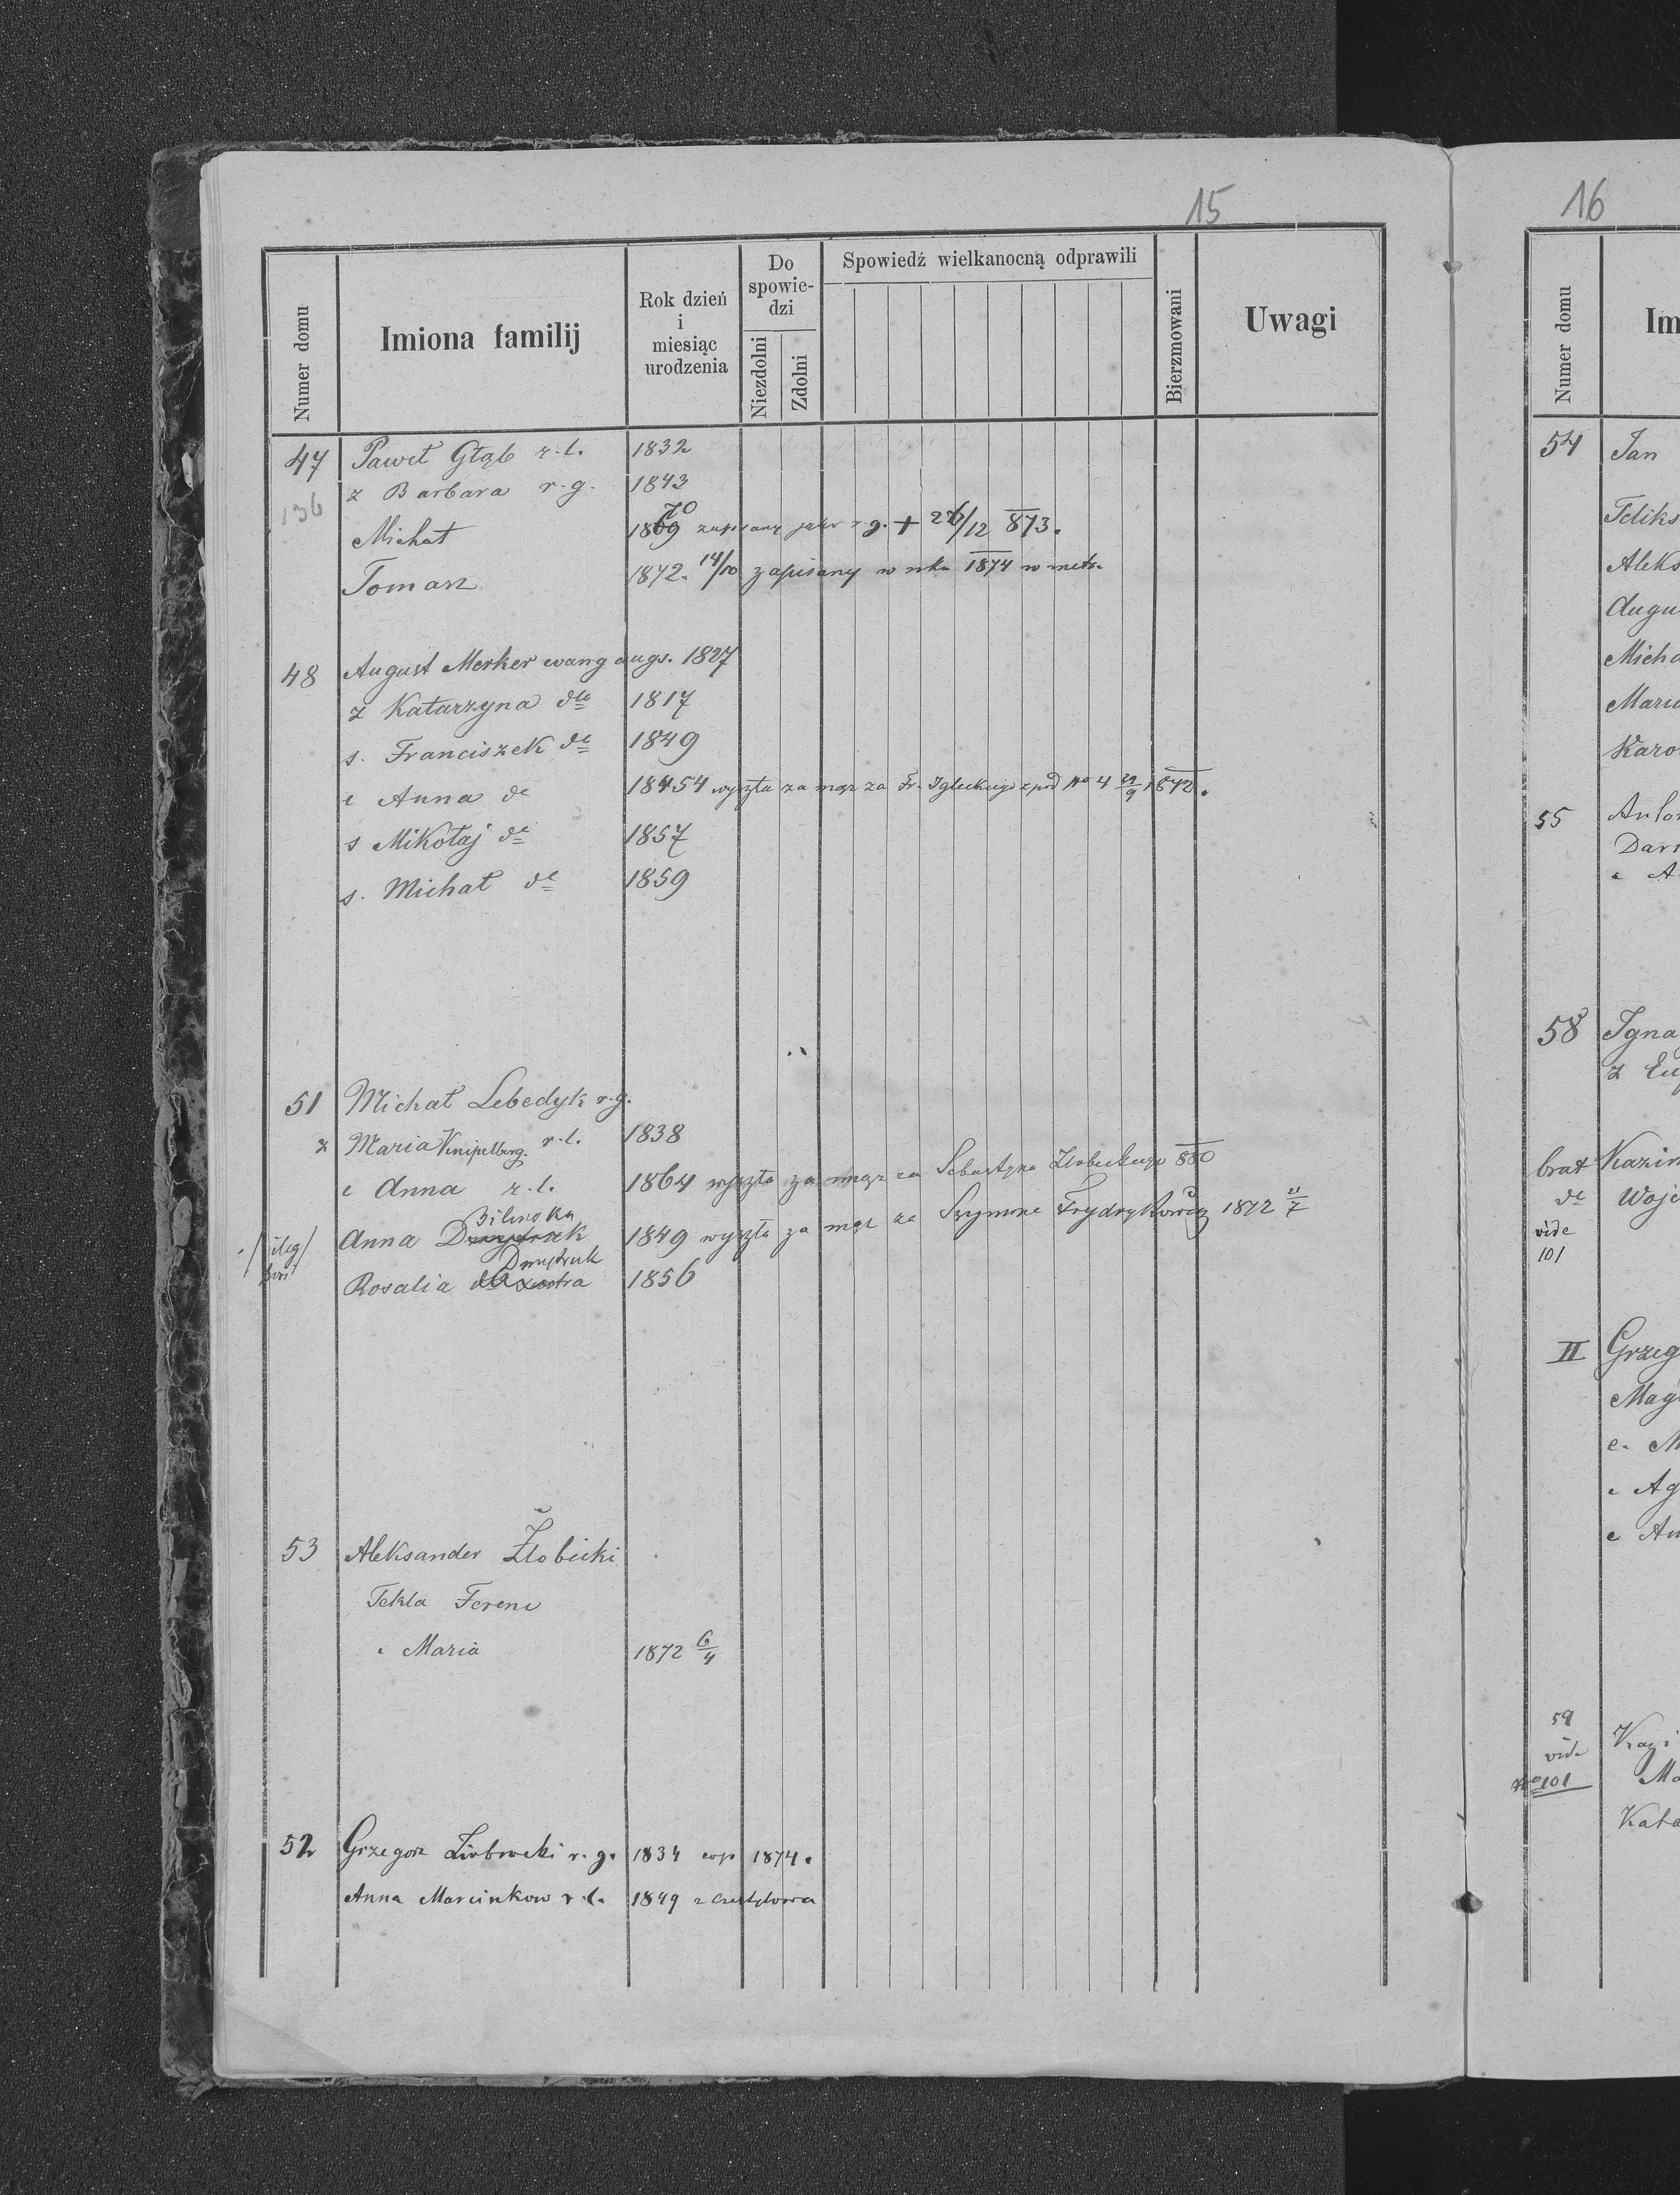 15
Numer domu
Imiona familij
Rok dzień i miesiąc urodzenia
Do spowiedzi
Niezdolni
Zdolni
Spowiedź wielkanocną odprawili
Bierzmowani
Uwagi
47 Paweł Głąb r.l. 1832
136 z Barbara r.g. 1843
Michał 1869 70 zapisany jako r.g. + 26/12 873.
Tomasz 1872. 14/10 zapisany w roku 1874 w metr.
48 August Merker ewang augs. 1827
z Katarzyna dto 1817
s. Franciszek de 1849
c Anna de 1854 wyszła za mąż za Fr. Igleckiego z pod No 4 9 1872.
s Mikołaj de 1857
s. Michał de 1859
51 Michał Lebedyk r.g.
z Maria Knipelberg. r.l. 1838
c Anna r.l. 1864 wyszła za mąż za Sebastyna Złobickiego 880
Bilinska
Anna Dmytruk 1849 wyszła za mąż za Szymona Frydrykowicz 1872 7
Dmytruk
Rosalia siostra 1856
53 Aleksander Złobicki
Tekla Ferenc
c Maria 1872 6/4
52 Grzegorz r.g. 1834 cop 1874.
Anna Marcinkow r.l. 1849 z
16
Numer domu
Im
54 Jan
Feliks
Aleks
Augu
Micha
Mary
Karo
55 Anton
Dar
c A
58 Igna
z Eu
brat Kazim
de Wojc
vide
101
II Grzeg
Mag
c. M
c Ag
c An
59 Kazi
vide
No 101 Ma
Kata